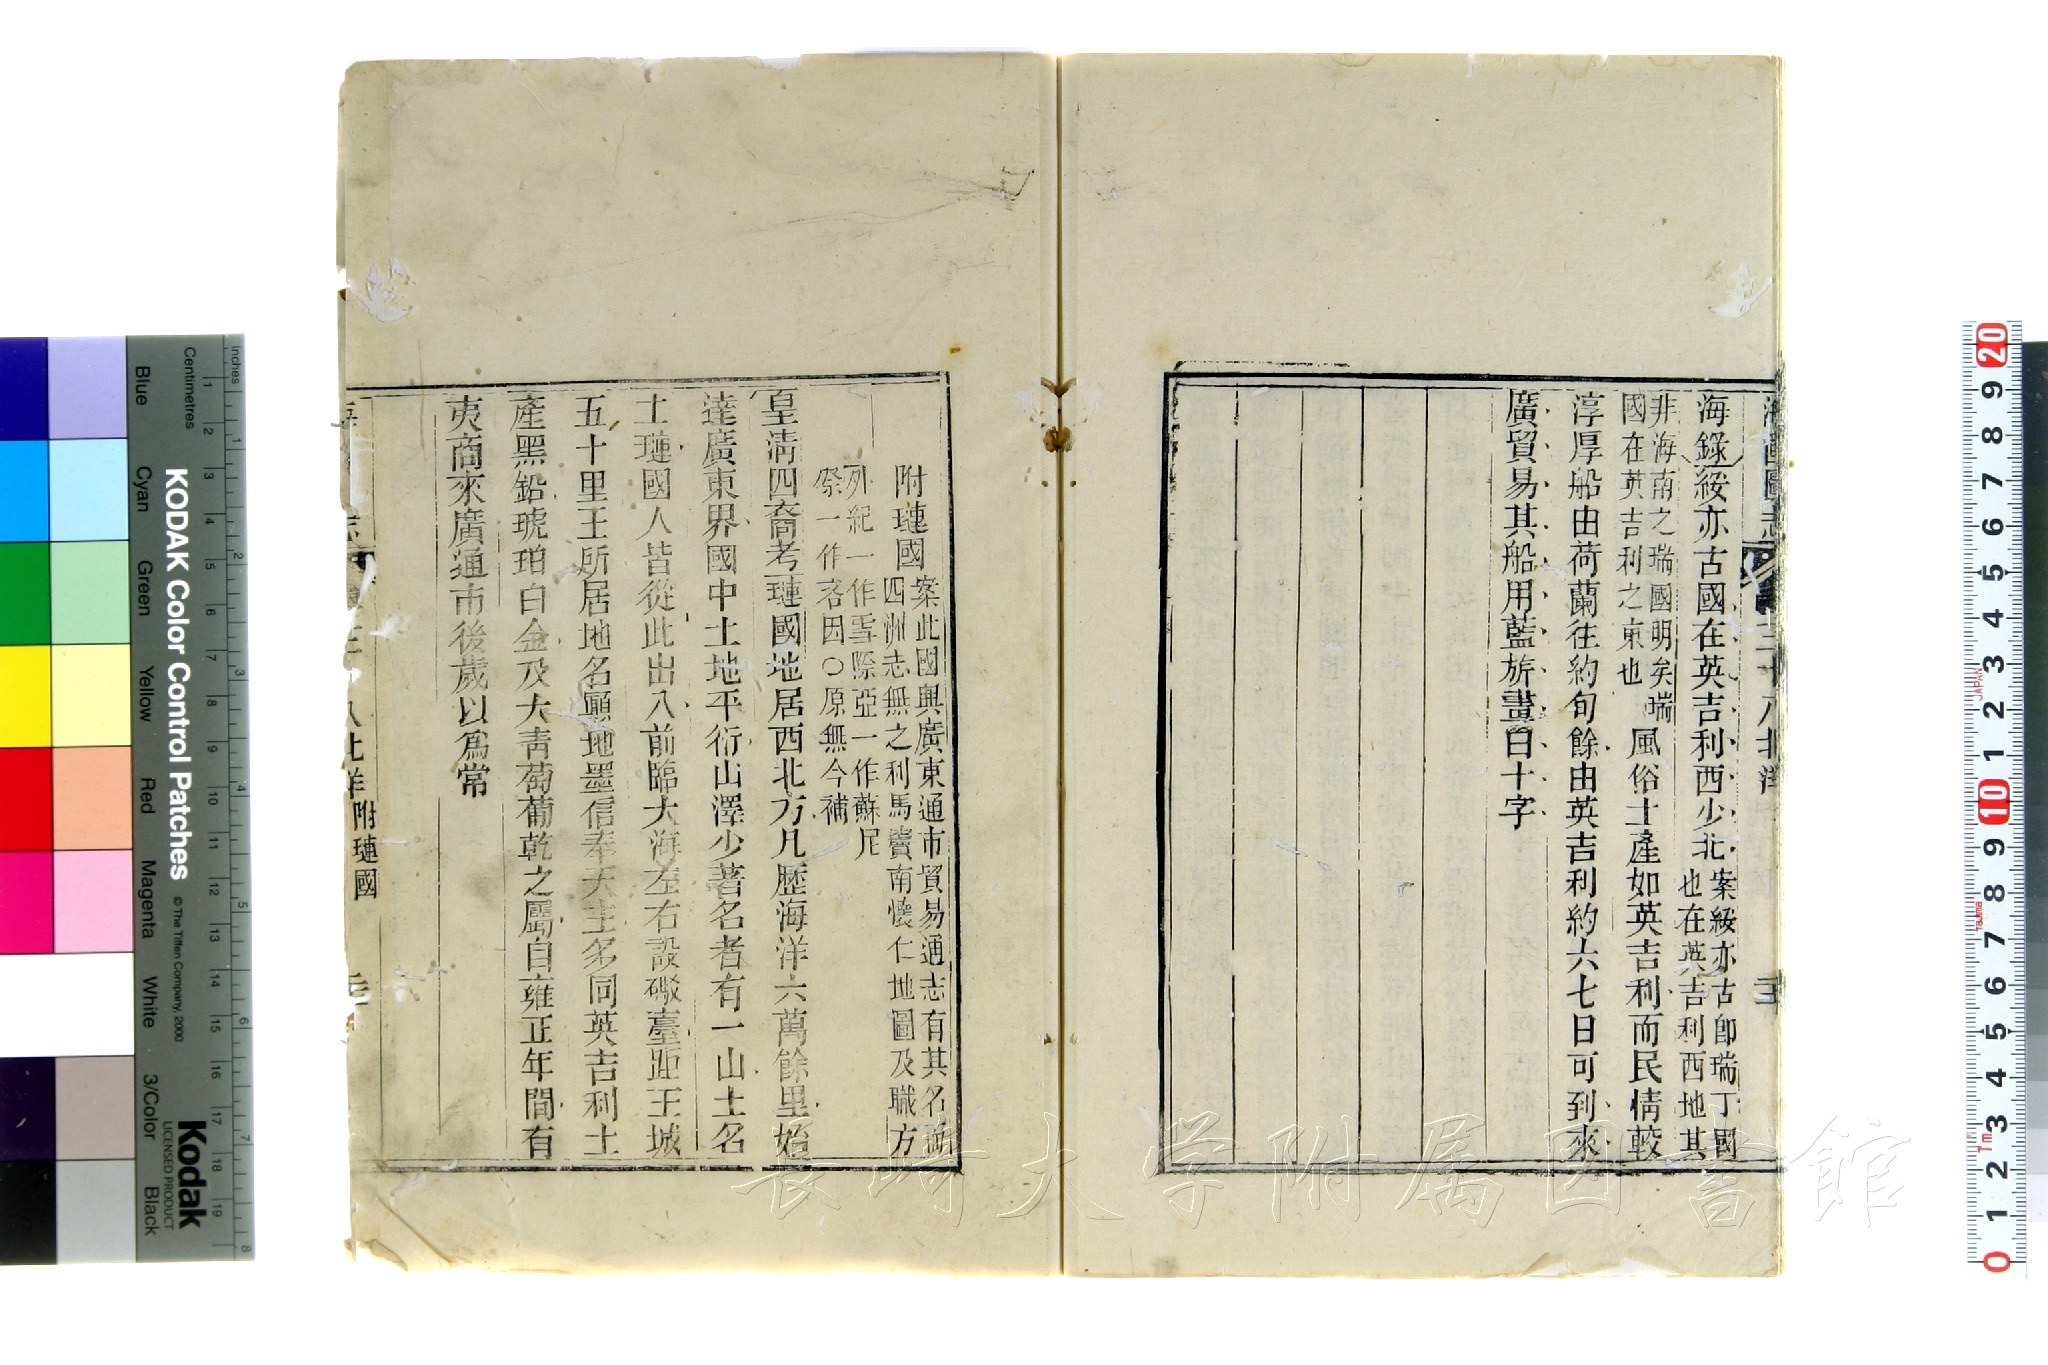 海國圖志
三十八北洋
海錄綏亦古國在英吉利西少北案綏亦古卽瑞丁國
也在英吉利西地其
非海南之瑞國明矣瑞
國在英吉利之東也
風俗土產如英吉利而民情較
淳厚船由荷蘭往約旬餘由英吉利約六七日可到來
廣貿易其船用藍旂畫白十字
附璉國
案此國與廣東通市貿易通志有其名
四洲志無之利馬竇南懷仁地圖及職方
外紀一作雪際亞一作蘇尼
祭一作咨因○原無今補
皇淸四裔考璉國地居西北方凡歷海洋六萬餘里始
達廣東界國中土地平衍山澤少著名者有一山土名
土璉國人皆從此出入前臨大海左右設礮臺距王城
五十里王所居地名顧地墨信奉天主多同英吉利土
產黑鉛琥珀白金及大靑葡葡乾之屬自雍正年間有
夷商來廣通市後歲以爲常
八北洋附璉國
KODAK Color Control Patches
© The Tiffen Company, 2000
Kodak
LICENSED PRODUCT
Inches
Centimetres
Blue
Cyan
Green
Yellow
Red
Magenta
White
3/Color
Black
JAPAN
長崎大学附属図書館